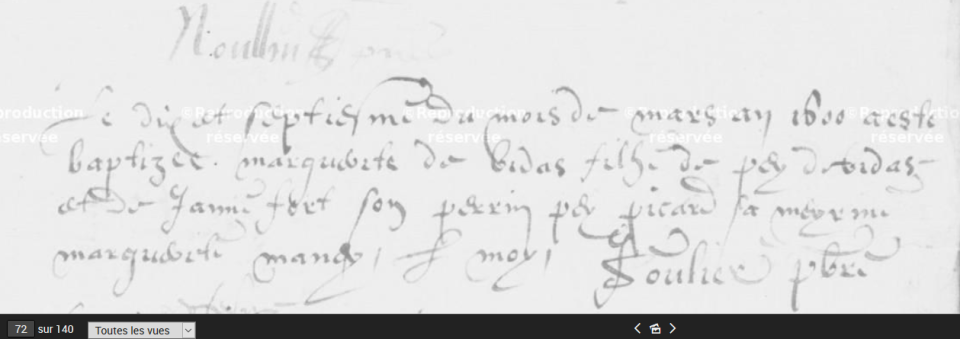 Le dix et septiesme du mois de mars an 1600 a este
baptizee marguerite de vidas filhe de pey de vidas
et de Janne fort son perrin pey picard sa meyrine
marguerite moy,
Soulier pbre
©Reproduction réservée
72 sur 140 Toutes les vues